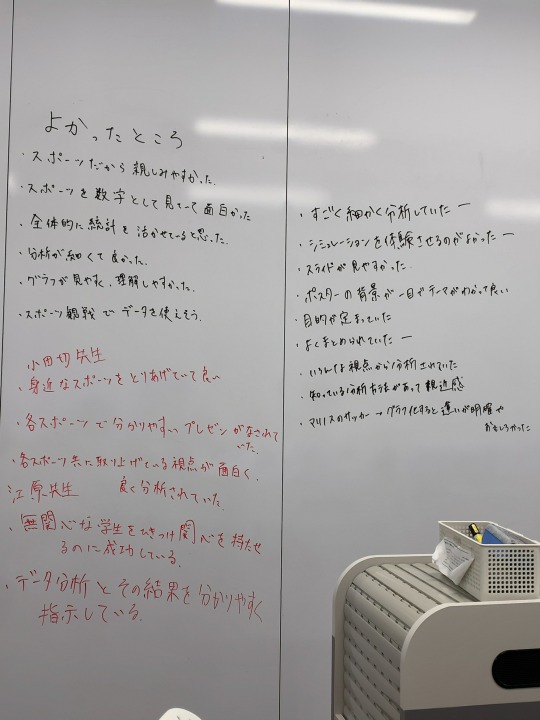 よかったところ
・スポーツだから親しみやすかった.
・スポーツを数字として見ていて面白かった
・全体的に統計を活かせていると思った.
・分析が細くて良かった.
・グラフが見やすく、理解しやすかった.
・スポーツ観戦でデータを使えそう.
小田切先生
・身近なスポーツをとりあげていて良い
・各スポーツで分かりやすいプレゼンがなされて
いた.
・各スポーツ共に取り上げている視点が面白く.
良く分析されていた.
江原先生
・無関心な学生をひきつけ関心を持たせ
るのに成功している.
・データ分析とその結果を分かりやすく
指示している.
・すごく細かく分析していた 一
・シミュレーションを体験させるのがよかった 一
・スライドが見やすかった.
・ポスターの背景が一目でテーマがわかって良い
・目的が定まっていた
・よくまとめられていた 一
・いろんな視点から分析されていた
・知っている分析方法があって親近感
・マリノスのサッカー→グラフ化すると違いが明確や
おもしろかった